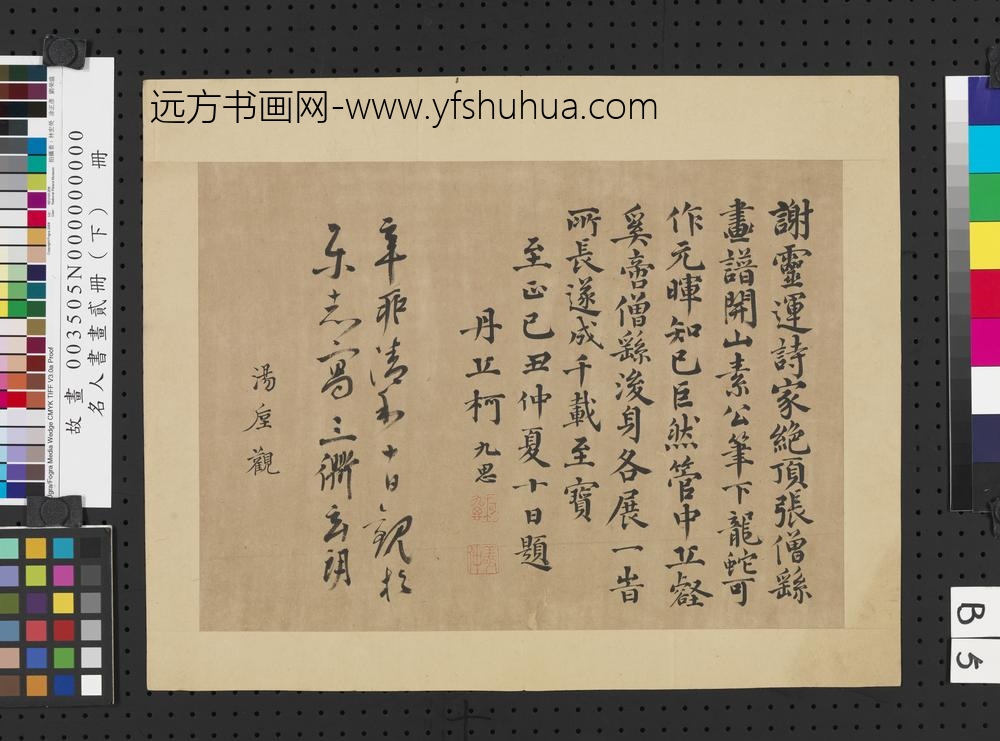 远方书画网-www.yfshuhua.com
謝靈運詩家絕頂張僧繇
畫譜開山素公筆下龍蛇可
作元暉知已巨然管中丘壑
奚啻僧繇後身各展一峕
所長遂成千載至寶
至正已丑仲夏十日題
丹丘柯九思
辛卯清和十日觀於
樂志寫
湯垕觀
故畫 003505N000000000
名人書畫貳冊(下) 冊
B
5